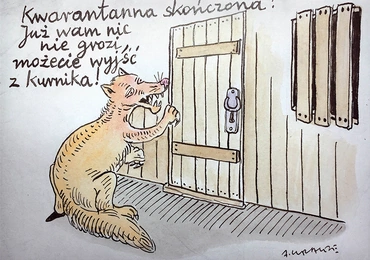 Kwarantanna skończona!
Już wam nic
nie grozi,
możecie wyjść
z kurnika!